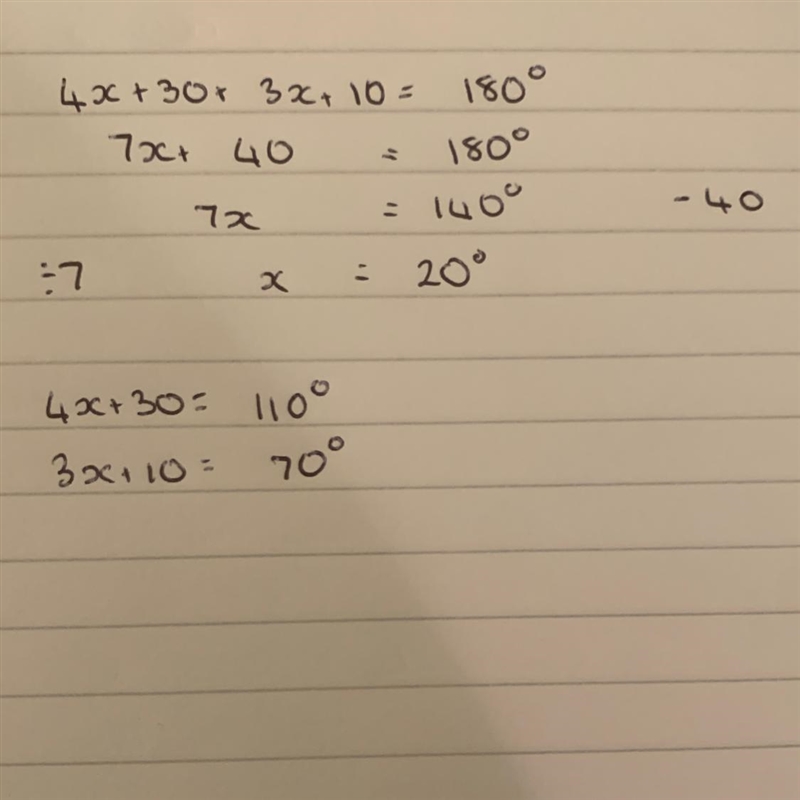 4x + 30 + 3x + 10 = 180°
7x + 40 = 180°
7x = 140° - 40
÷7 x = 20°
4x + 30 = 110°
3x + 10 = 70°